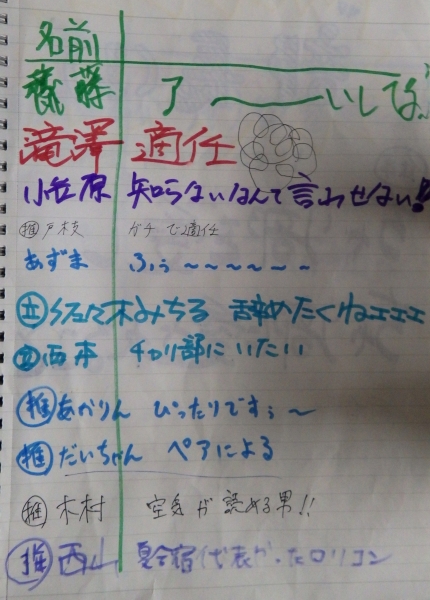 名前
齋藤 了〜〜いしてな
滝澤 適任
小笠原 知らないなんて言わせない!!
推 戸枝 ガチで適任
あずま ふぅ〜〜〜〜〜〜
立 佐々木みちる 辞めたくねェェェ
立 西本 チャリ部にいたい
推 あかりん ぴったりですぅ〜
推 だいちゃん ペアによる
推 木村 空気が読める男!!
推 西山 夏合宿代表だったロリコン